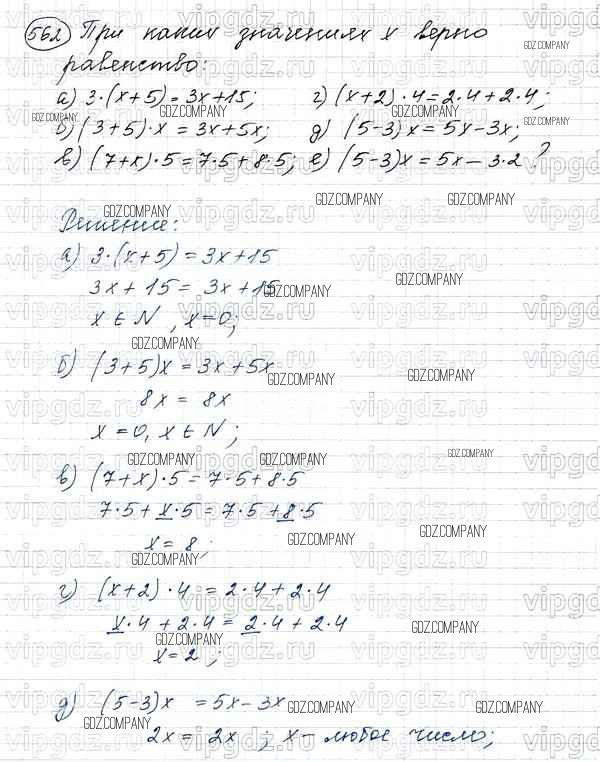 562 При каких значениях x верно
равенство:
а) 3·(x+5)=3x+15; г) (x+2)·4=2·4+2·4;
б) (3+5)·x=3x+5x; д) (5-3)x=5x-3x;
в) (7+x)·5=7·5+8·5; е) (5-3)x=5x-3·2 ?
Решение:
а) 3·(x+5)=3x+15
3x+15=3x+15
x ∈ N, x=0;
б) (3+5)x=3x+5x
8x = 8x
x=0, x ∈ N;
в) (7+x)·5=7·5+8·5
7·5+x·5=7·5+8·5
x=8;
г) (x+2)·4=2·4+2·4
x·4+2·4=2·4+2·4
x=2;
д) (5-3)x=5x-3x
2x=2x; x - любое число;
vipgdz.ru
GDZ.COMPANY